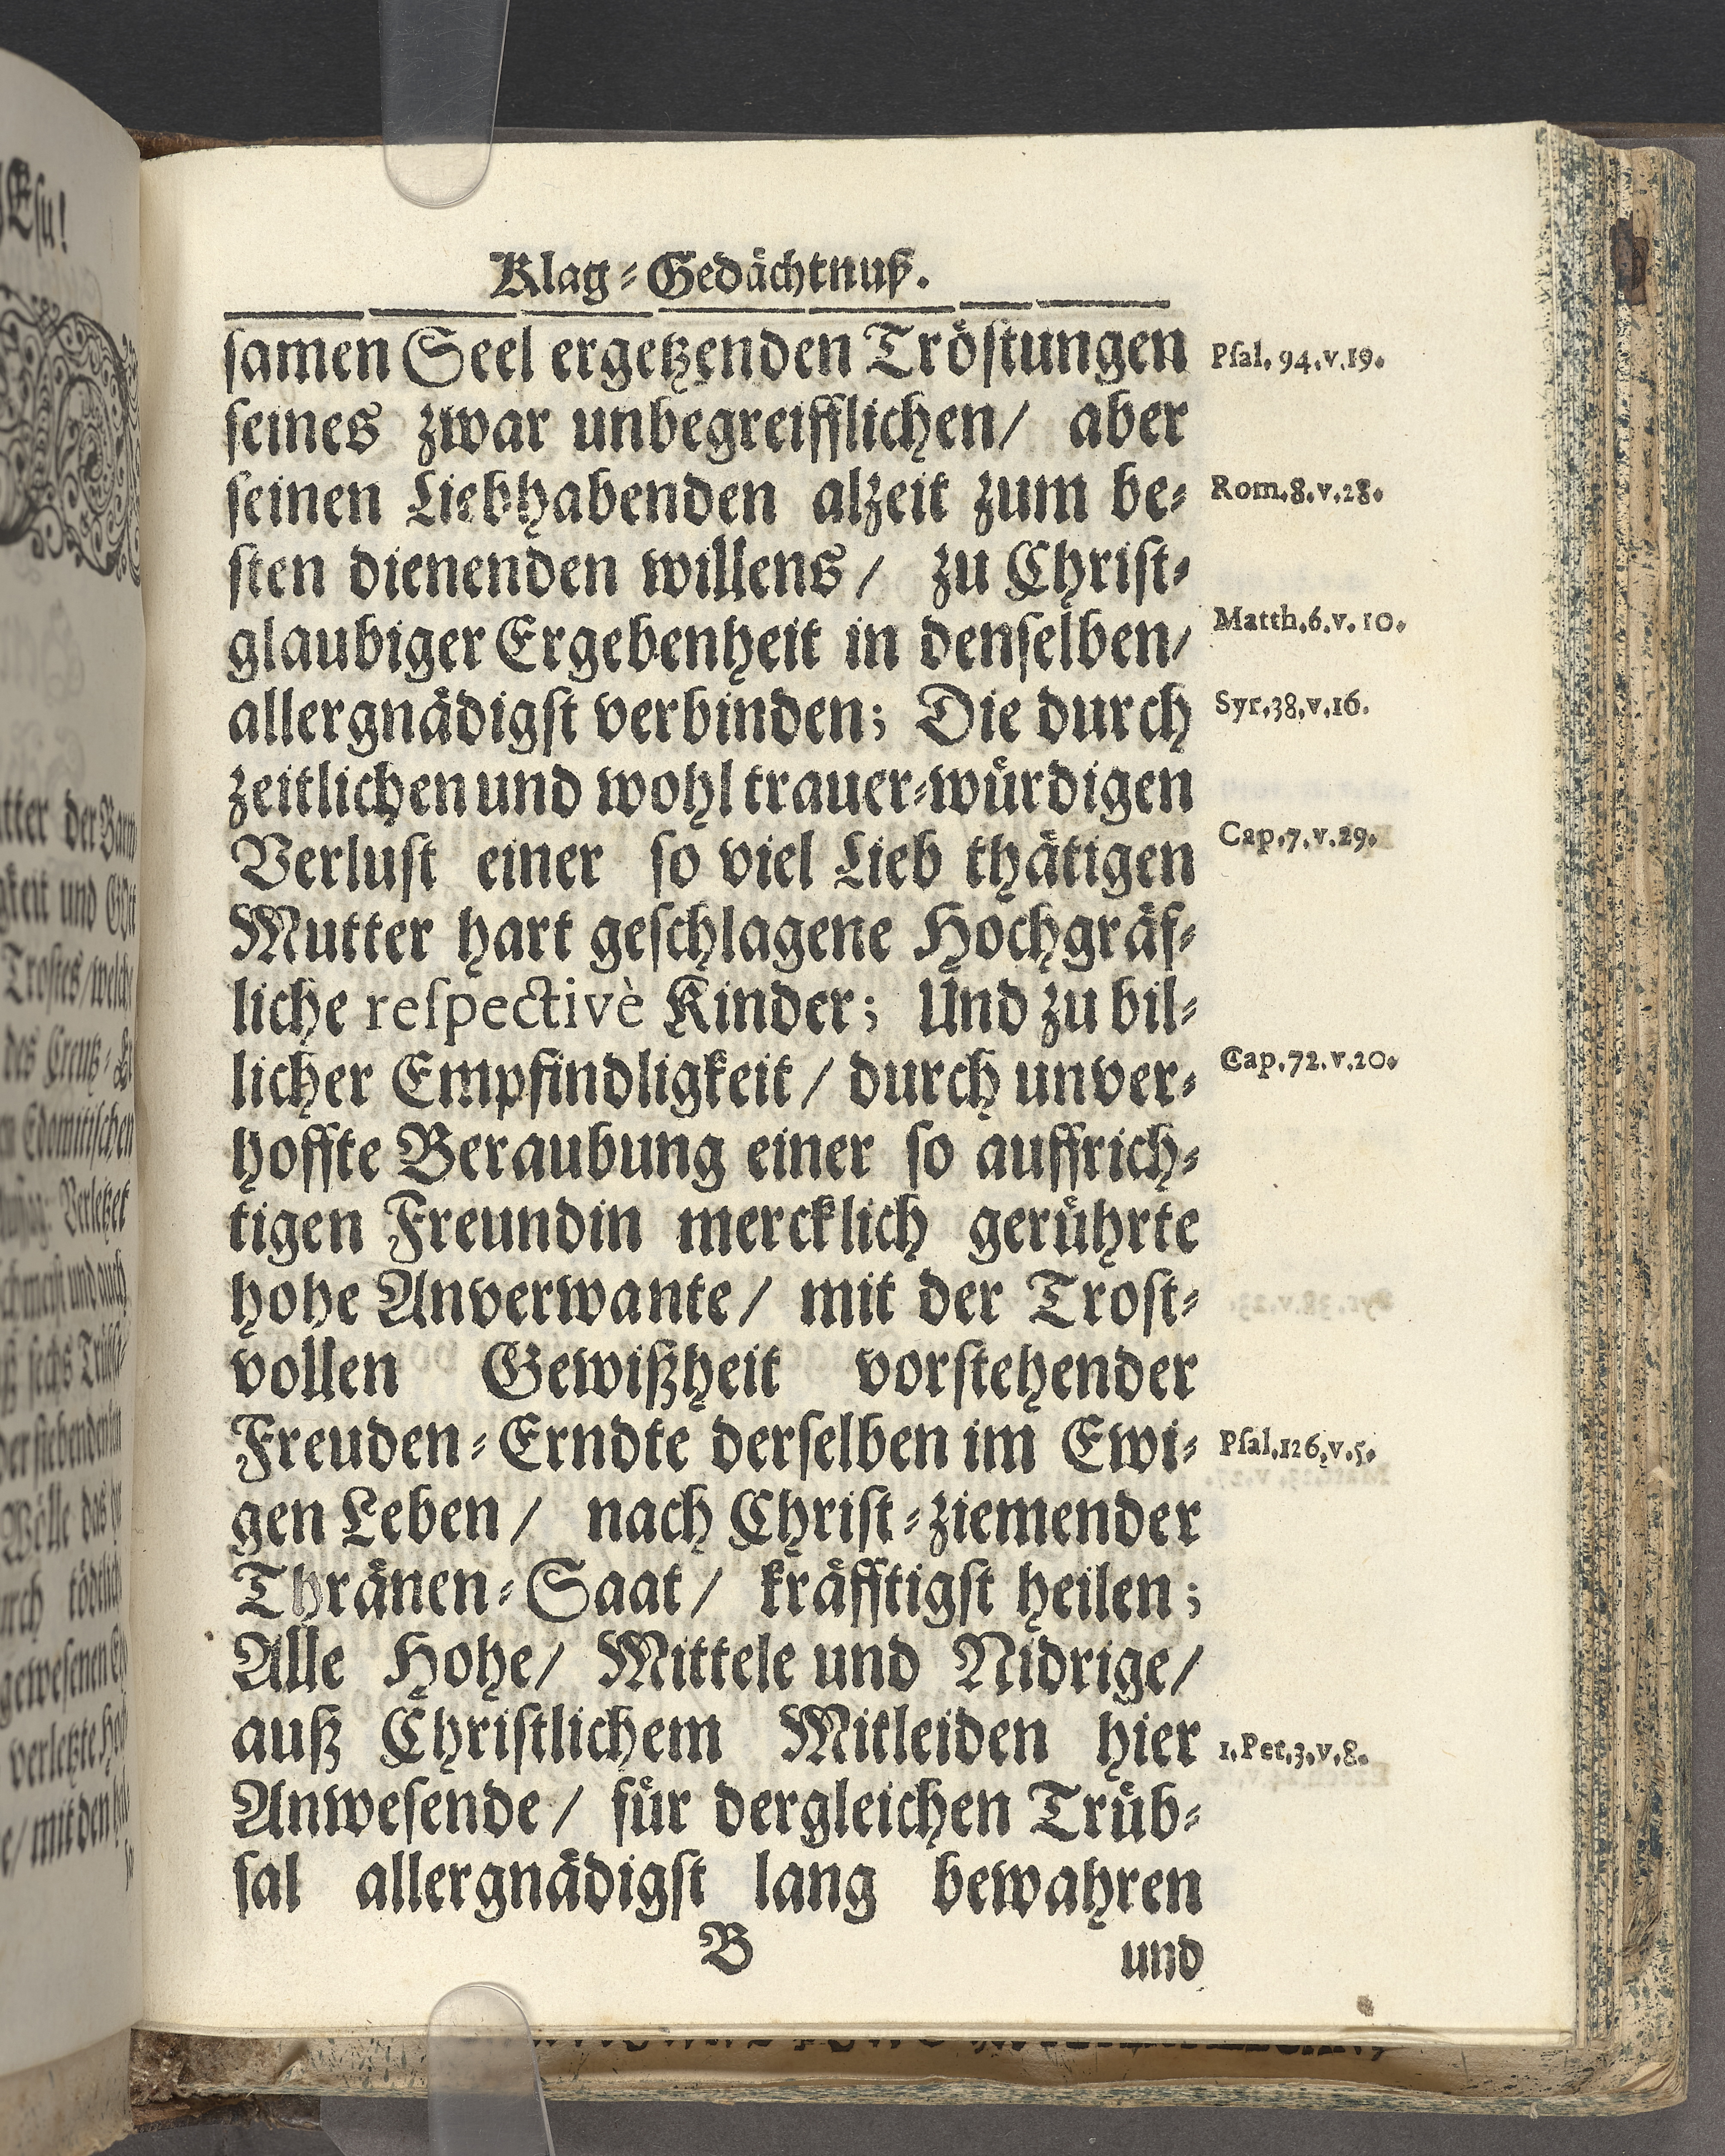 Klag⸗Gedächtnuß.
ſamen Seel ergetzenden Tröſtungen
Pſal. 94. v. 19.
ſeines zwar unbegreifflichen/ aber
ſeinen Liebhabenden alzeit zum be⸗
Rom. 8. v. 28.
ſten dienenden willens/ zu Chriſt⸗
glaubiger Ergebenheit in denſelben/
Matth. 6. v. 10.
allergnädigſt verbinden; Die durch
Syr. 38. v. 16.
zeitlichen und wohl trauer⸗würdigen
Verluſt einer ſo viel Lieb thätigen
Cap. 7. v. 29.
Mutter hart geſchlagene Hochgräf⸗
liche reſpectivè Kinder; Und zu bil⸗
licher Empfindligkeit/ durch unver⸗
Cap. 72. v. 20.
hoffte Beraubung einer ſo auffrich⸗
tigen Freundin mercklich gerührte
hohe Anverwante/ mit der Troſt⸗
vollen Gewißheit vorſtehender
Freuden⸗Erndte derſelben im Ewi⸗
Pſal. 126. v. 5.
gen Leben/ nach Chriſt⸗ziemender
Thränen⸗Saat/ kräfftigſt heilen;
Alle Hohe/ Mittele und Nidrige/
auß Chriſtlichem Mitleiden hier
1. Pet. 3. v. 8.
Anweſende/ für dergleichen Trüb⸗
ſal allergnädigſt lang bewahren
B
und